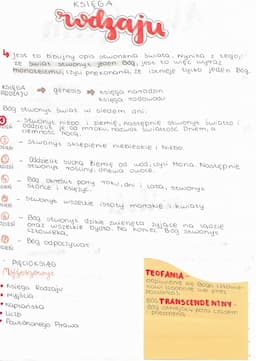 KSIĘGA
rodzaju
↳ jest to biblijny opis stworzenia świata, wynika z tego,
że świat stworzył jeden Bóg, jest to więc wyraz
monoteizmu, czyli przekonania, że istnieje tylko jeden Bóg.
KSIĘGA RODZAJU → genesis → księga narodzin
księga rodowodu
Bóg stworzył świat w siedem dni.
① - Stworzył niebo i ziemię, następnie stworzył światło i
DZIEŃ oddzielił je od mroku, nazwał światłość Dniem, a
ciemność Nocą.
② - Stworzył sklepienie niebieskie i Niebo.
DZIEŃ
③ - Oddzielił suchą ziemię od wód, czyli Morza. Następnie
DZIEŃ stworzył rośliny, drzewa owoc.
④ - Bóg określił pory roku, dni i lata, stworzył
DZIEŃ słońce i księżyc.
⑤ - Stworzył wszelkie istoty morskie i kwiaty.
DZIEŃ
⑥ - Bóg stworzył dzikie zwierzęta żyjące na lądzie
DZIEŃ oraz wszelkie bydło. Na koniec Bóg stworzył
człowieka.
⑦ - Bóg odpoczywał.
DZIEŃ
PIĘCIOKSIĄG
Mojżeszowy:
• Księga Rodzaju
• Wyjścia
• Kapłańska
• Liczb
• Powtórzonego Prawa
TEOFANIA -
objawienie się Boga
BÓG TRANSCENDENTNY -
Bóg istniejący poza czasem
i przestrzenią.